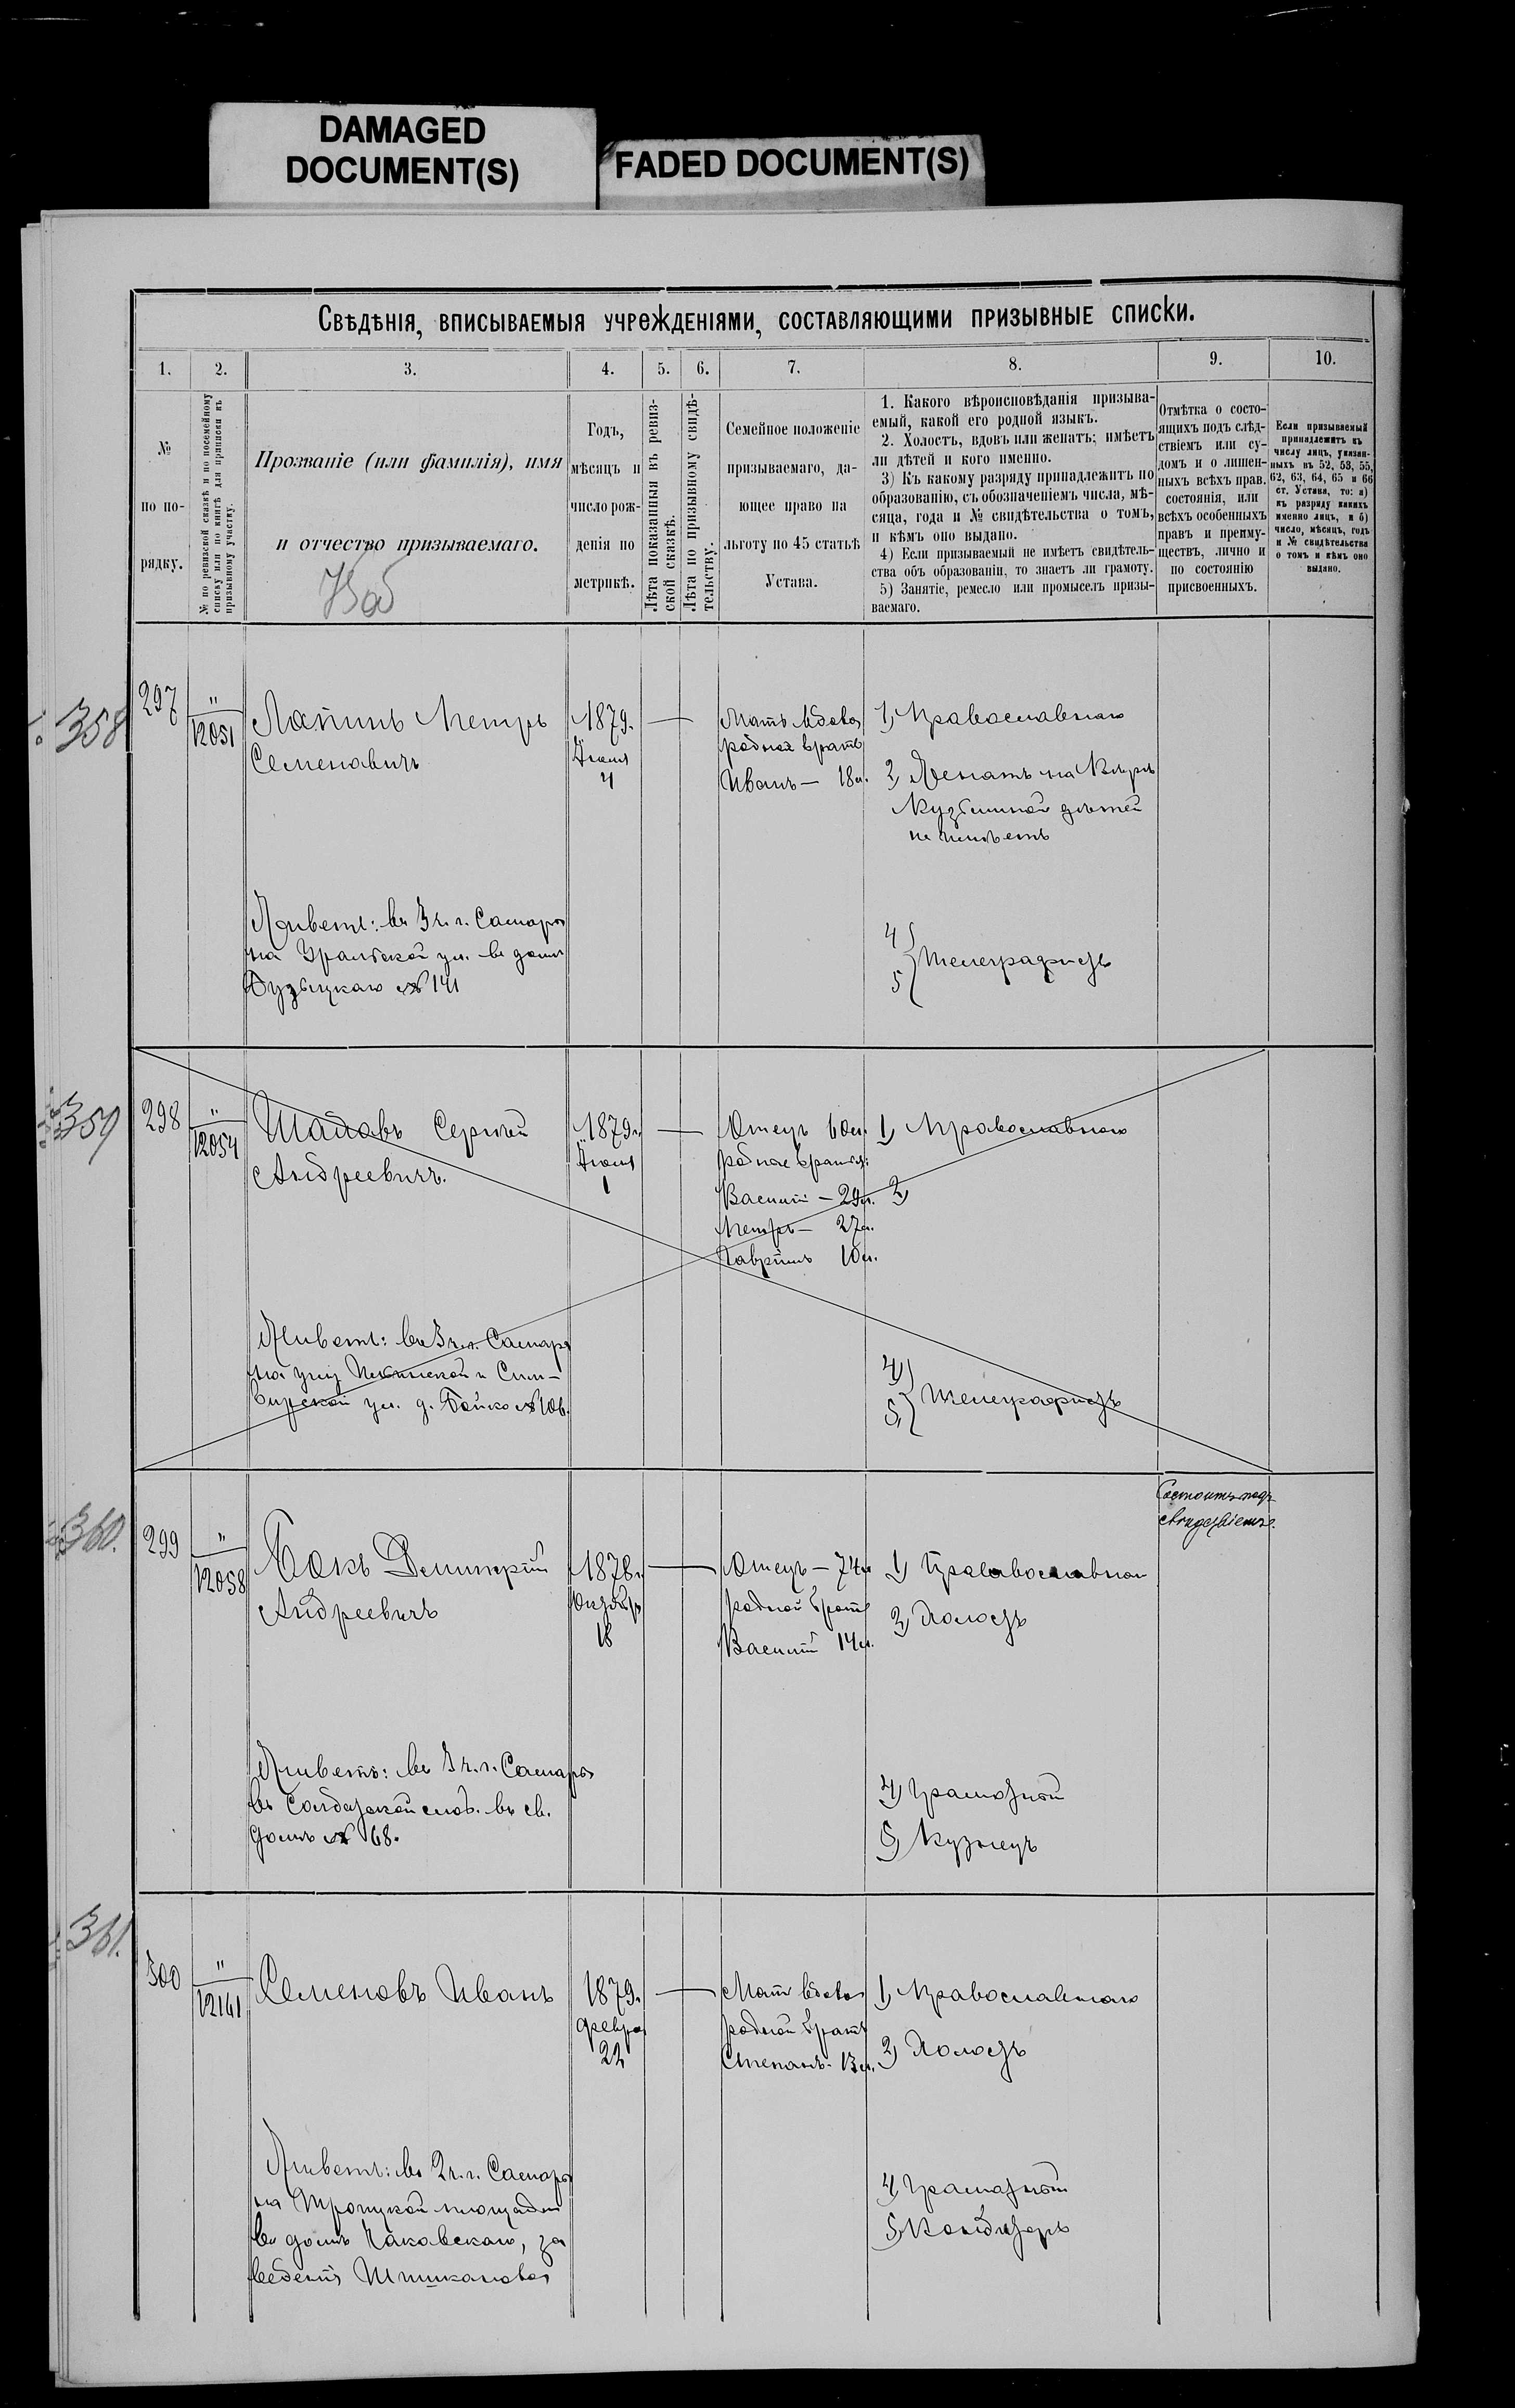 DAMAGED
DOCUMENT(S)
FADED DOCUMENT(S)
Свѣдѣнія, вписываемыя учрежденіями, составляющими призывные списки.
1.
2.
3.
4.
5.
6.
7.
8.
9.
10.
№
по по-
рядку.
№ по ревизской сказкѣ и по посемейному
списку или по книгѣ для приписки къ
призывному участку.
Прозваніе (или фамилія), имя
и отчество призываемаго.
Годъ,
мѣсяцъ и
число рож-
денія по
метрикѣ.
Лѣта показанныя въ ревиз-
ской сказкѣ.
Лѣта по призывному свидѣ-
тельству.
Семейное положеніе
призываемаго, да-
ющее право на
льготу по 45 статьѣ
Устава.
1. Какого вѣроисповѣданія призыва-
емый, какой его родной языкъ.
2. Холостъ, вдовъ или женатъ; имѣетъ
ли дѣтей и кого именно.
3) Къ какому разряду принадлежитъ по
образованію, съ обозначеніемъ числа, мѣ-
сяца, года и № свидѣтельства о томъ,
и кѣмъ оно выдано.
4) Если призываемый не имѣетъ свидѣтель-
ства объ образованіи, то знаетъ ли грамоту.
5) Занятіе, ремесло или промыселъ призы-
ваемаго.
Отмѣтка о состо-
ящихъ подъ слѣд-
ствіемъ или су-
домъ и о лишен-
ныхъ всѣхъ прав.
состоянія, или
всѣхъ особенныхъ
правъ и преиму-
ществъ, лично и
по состоянію
присвоенныхъ.
Если призываемый
принадлежитъ къ
числу лицъ, указан-
ныхъ въ 52, 53, 55,
62, 63, 64, 65 и 66
ст. Устава, то: а)
къ разряду какихъ
именно лицъ, и б)
число, мѣсяцъ, годъ
и № свидѣтельства
о томъ и кѣмъ оно
выдано.
358
297
"
12051
Лапинъ Петръ
Семеновичъ
1879.
Іюня
4
Мать вдова
родной братъ
Иванъ — 18л.
1) Православнаго
2) Женатъ на
Кузьминой дѣтей
не имѣетъ
Живетъ: въ 3 ч. г. Самары
на Уральской ул. въ домѣ
№ 141
4
5 Телеграфистъ
359
298
"
12054
Сергѣй
Андреевичъ.
1879.
Іюня
1
Отецъ 60л.
родные братья:
Василій — 29л.
Петръ — 27л.
Гавріилъ 10л.
1) Православнаго
2)
Живетъ: въ 3 ч. г. Самары
на углу и Сим-
бирской ул. д. Бойко № 106.
4)
5) Телеграфистъ
360.
299
"
12058
Бокъ Димитрій
Андреевичъ
1878.
Октября
18
Отецъ — 74л
родной братъ
Василій 14л.
1) Православнаго
2) Холостъ
Состоитъ подъ
слѣдствіемъ.
Живетъ: въ 3 ч. г. Самары
въ Солдатской слоб. въ св.
домѣ № 68.
4) Грамотный
5) Кузнецъ
361.
300
"
12141
Семеновъ Иванъ
1879.
Февраля
22
Мать вдова
родной братъ
Степанъ - 13л.
1) Православнаго
2) Холостъ
Живетъ: въ 2 ч. г. Самары
на Троицкой площади
въ домѣ Чаковскаго, за
ведені
4) Грамотный
5) Кондитеръ